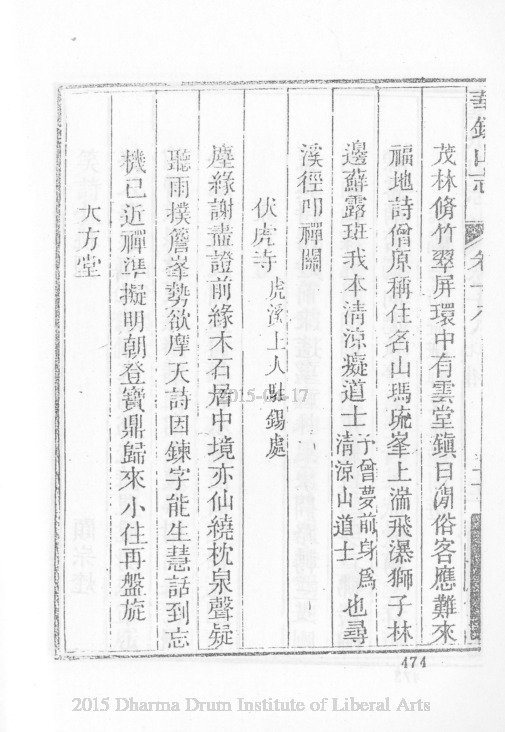 山志 卷十
茂林脩竹翠屏環中有雲堂鎮日閒俗客應難來
福地詩僧原稱住名山瑪琉峯上湍飛瀑獅子林
邊蘚露班我本清涼癡道士予曾夢前身爲清涼山道士也尋
溪徑叩禪關
伏虎寺 虎溪上人駐錫處
塵緣謝盡證前緣木石居中境亦仙繞枕泉聲疑
聽雨撲簷峯勢欲摩天詩因鍊字能生慧話到忘
機已近禪準擬明朝登寶鼎歸來小住再盤旋
大方堂
474
2015 Dharma Drum Institute of Liberal Arts